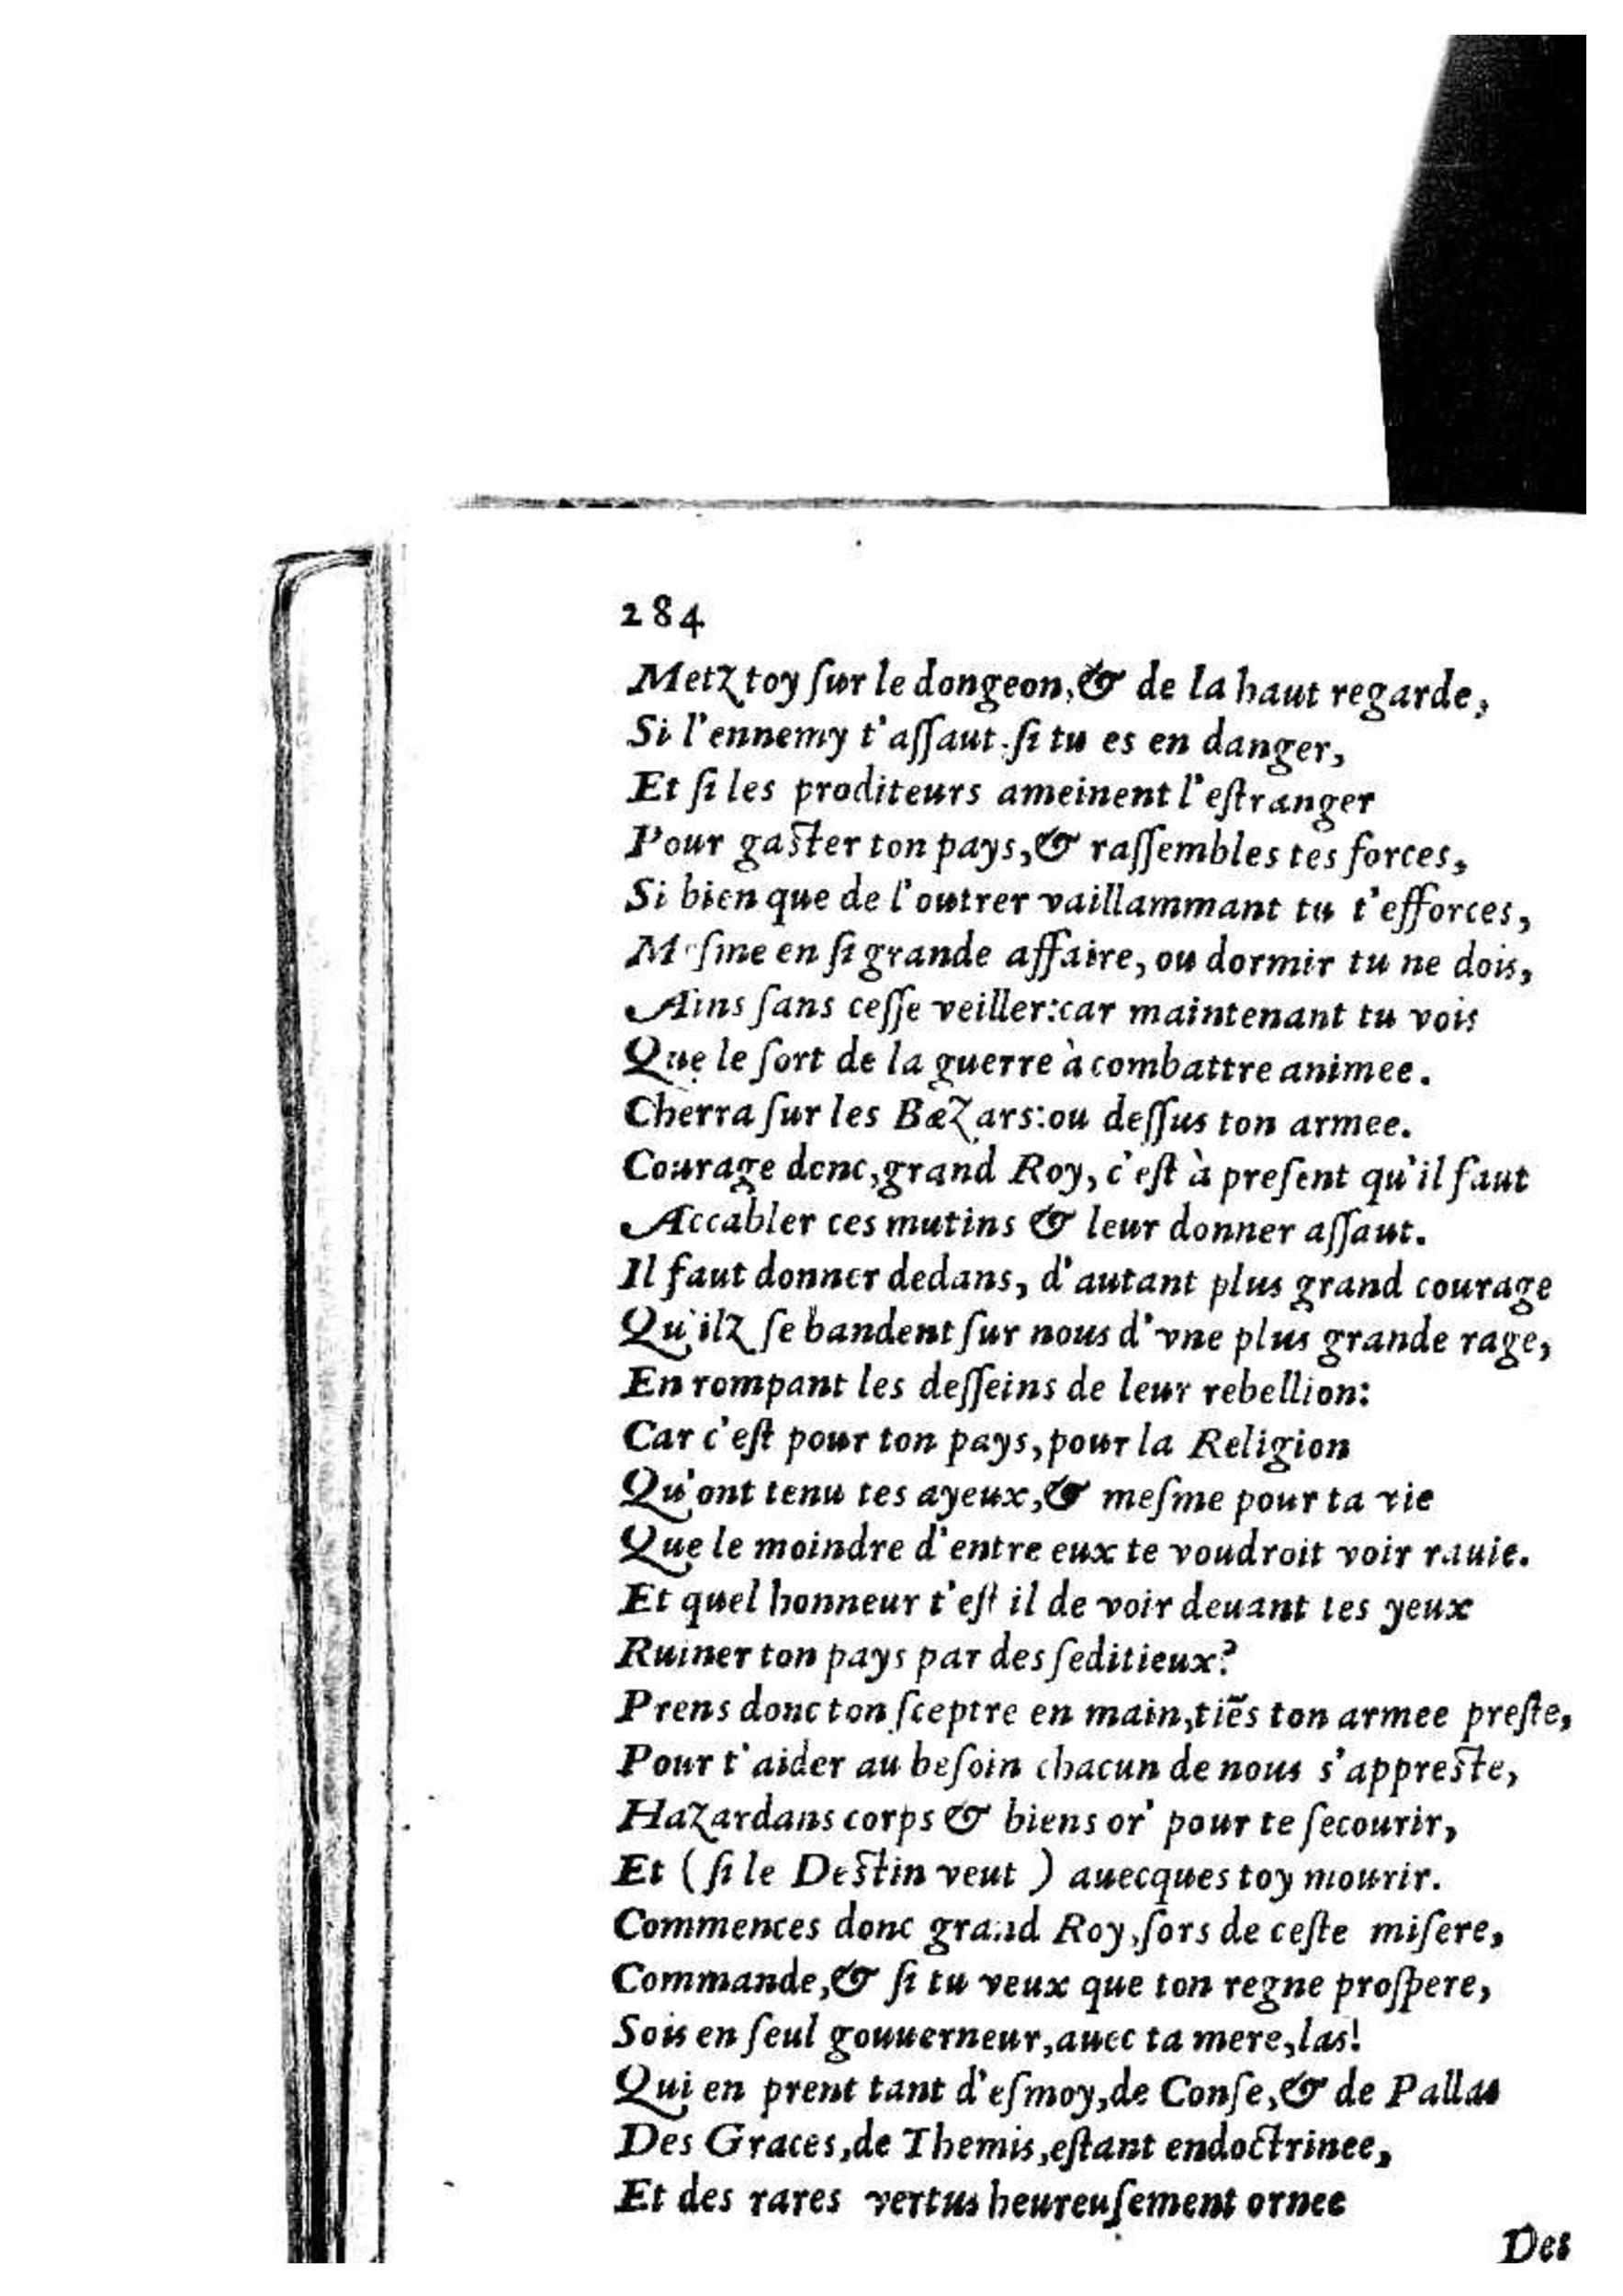 284
Metz toy ſur le dongeon, & de la haut regarde,
Si l'ennemy t'aſſaut. ſi tu es en danger,
Et ſi les proditeurs ameinent l'eſtranger
Pour gaſter ton pays, & raſſembles tes forces,
Si bien que de l'outrer vaillammant tu t'efforces,
Meſme en ſi grande affaire, ou dormir tu ne dois,
Ains ſans ceſſe veiller: car maintenant tu vois
Que le ſort de la guerre à combattre animee.
Cherra ſur les Bæzars: ou deſſus ton armee.
Courage donc, grand Roy, c'eſt à preſent qu'il faut
Accabler ces mutins & leur donner aſſaut.
Il faut donner dedans, d'autant plus grand courage
Qu'ilz ſe bandent ſur nous d'vne plus grande rage,
En rompant les deſſeins de leur rebellion:
Car c'eſt pour ton pays, pour la Religion
Qu'ont tenu tes ayeux, & meſme pour ta vie
Que le moindre d'entre eux te voudroit voir rauie.
Et quel honneur t'eſt il de voir deuant tes yeux
Ruiner ton pays par des ſeditieux?
Prens donc ton ſceptre en main, tiẽs ton armee preſte,
Pour t'aider au beſoin chacun de nous s'appreſte,
Hazardans corps & biens or' pour te ſecourir,
Et ( ſi le Deſtin veut ) auecques toy mourir.
Commences donc grand Roy, ſors de ceſte miſere,
Commande, & ſi tu veux que ton regne proſpere,
Sois en ſeul gouuerneur, auec ta mere, las!
Qui en prent tant d'eſmoy, de Conſe, & de Pallas
Des Graces, de Themis, eſtant endoctrinee,
Et des rares vertus heureuſement ornee
Des